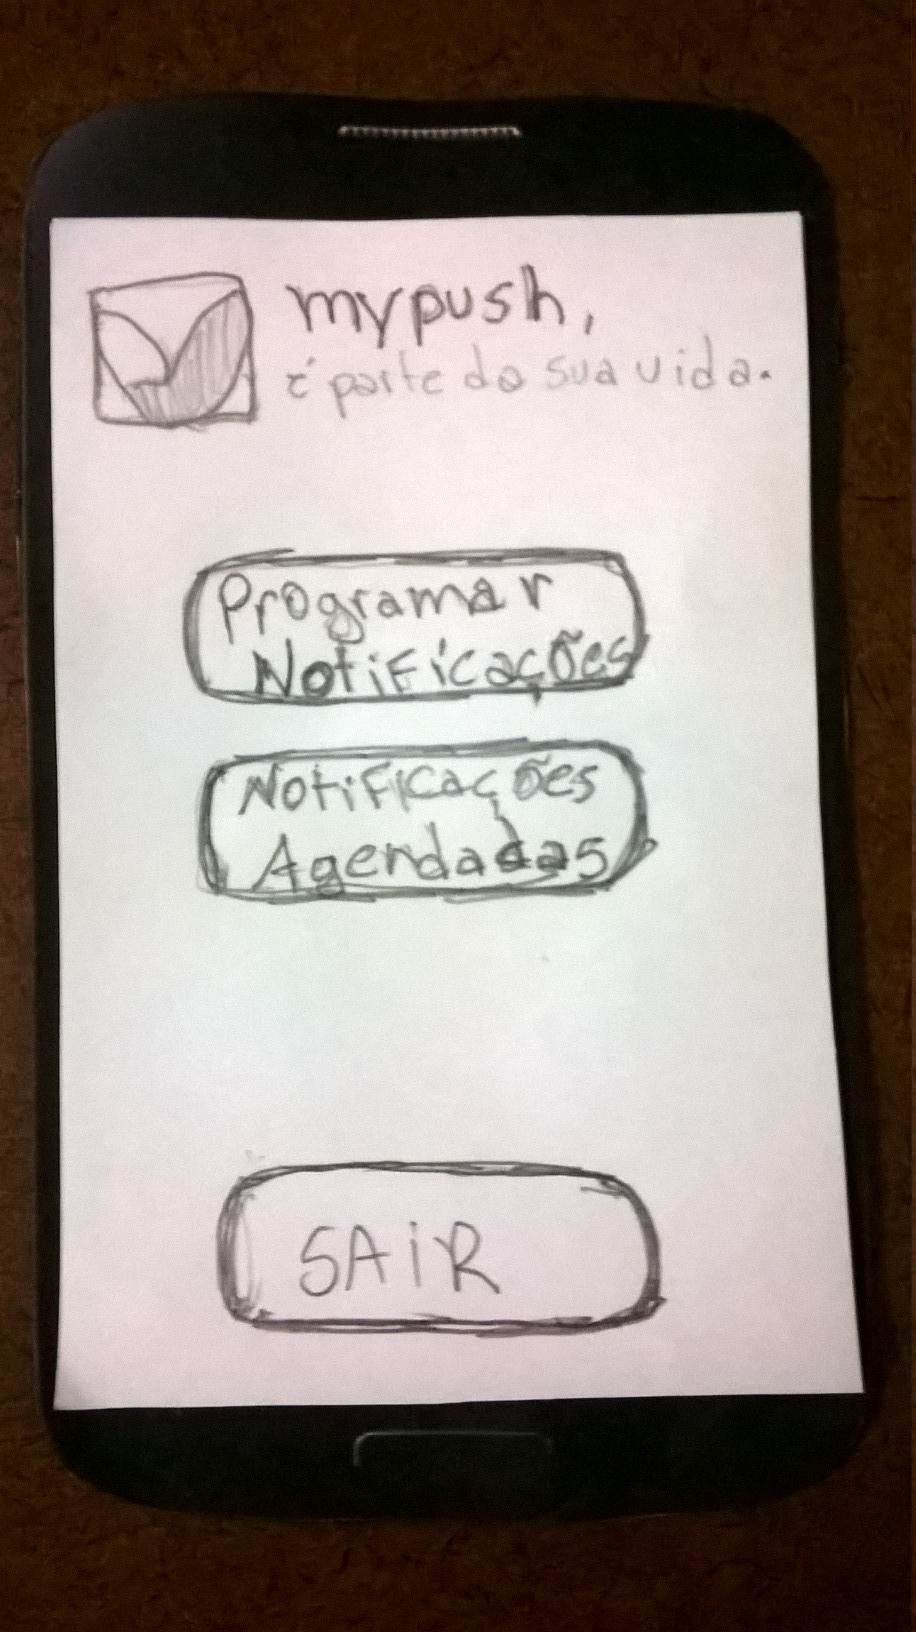 mypush,
é parte da sua vida.
Programar
Notificações
Notificações
Agendadas
SAIR